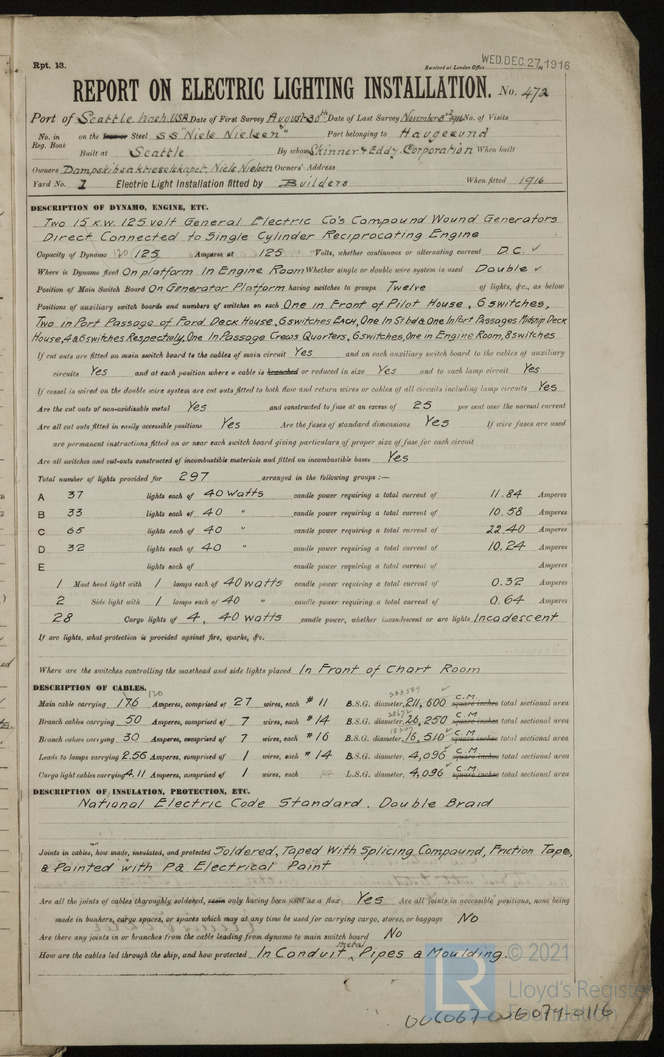 Rpt. 13.
Received at London Office WED. DEC. 27, 1916
REPORT ON ELECTRIC LIGHTING INSTALLATION. No. 472
Port of Seattle Wash. USA Date of First Survey August 30th Date of Last Survey November 8th 1916 No. of Visits
No. in Reg. Book on the Steel SS "Niels Nielsen" Port belonging to Haugesund
Built at Seattle By whom Skinner & Eddy Corporation When built
Owners Dampskibsaktieselskapet, Niels Nielsen Owners' Address
Yard No. 1 Electric Light Installation fitted by Builders When fitted 1916
DESCRIPTION OF DYNAMO, ENGINE, ETC.
Two 15 K.W. 125 volt General Electric Co's Compound Wound Generators
Direct Connected to Single Cylinder Reciprocating Engine
Capacity of Dynamo 125 Amperes at 125 Volts, whether continuous or alternating current D.C. ✓
Where is Dynamo fixed On platform In Engine Room Whether single or double wire system is used Double ✓
Position of Main Switch Board On Generator Platform having switches to groups Twelve of lights, &c., as below
Positions of auxiliary switch boards and numbers of switches on each One in Front of Pilot House, 6 switches,
Two in Port Passage of Ford Deck House, 6 switches Each, One In Stbd & One In Port Passages Midship Deck
House, 4 & 6 switches Respectively, One In Passage Crews Quarters, 6 switches, One in Engine Room, 8 switches
If cut outs are fitted on main switch board to the cables of main circuit Yes and on each auxiliary switch board to the cables of auxiliary
circuits Yes and at each position where a cable is branched or reduced in size Yes and to each lamp circuit Yes
If vessel is wired on the double wire system are cut outs fitted to both flow and return wires or cables of all circuits including lamp circuits Yes
Are the cut outs of non-oxidizable metal Yes and constructed to fuse at an excess of 25 per cent over the normal current
Are all cut outs fitted in easily accessible positions Yes Are the fuses of standard dimensions Yes If wire fuses are used
are permanent instructions fitted on or near each switch board giving particulars of proper size of fuse for each circuit
Are all switches and cut-outs constructed of incombustible materials and fitted on incombustible bases Yes
Total number of lights provided for 297 arranged in the following groups :—
A 37 lights each of 40 watts candle power requiring a total current of 11.84 Amperes
B 33 lights each of 40 " candle power requiring a total current of 10.58 Amperes
C 65 lights each of 40 " candle power requiring a total current of 22.40 Amperes
D 32 lights each of 40 " candle power requiring a total current of 10.24 Amperes
E lights each of candle power requiring a total current of Amperes
1 Mast head light with 1 lamps each of 40 watts candle power requiring a total current of 0.32 Amperes
2 Side light with 1 lamps each of 40 " candle power requiring a total current of 0.64 Amperes
28 Cargo lights of 4, 40 watts candle power, whether incandescent or arc lights Incadescent
If arc lights, what protection is provided against fire, sparks, &c.
Where are the switches controlling the masthead and side lights placed In Front of Chart Room
DESCRIPTION OF CABLES.
Main cable carrying 176 120 Amperes, comprised of 27 wires, each # 11 B.S.G. diameter, 211,600 C.M. square inches total sectional area
Branch cables carrying 50 Amperes, comprised of 7 wires, each # 14 B.S.G. diameter, 26,250 C.M. square inches total sectional area
Branch cables carrying 30 Amperes, comprised of 7 wires, each # 16 B.S.G. diameter, 16,510 C.M. square inches total sectional area
Leads to lamps carrying 2.56 Amperes, comprised of 1 wires, each # 14 B.S.G. diameter, 4,096 C.M. square inches total sectional area
Cargo light cables carrying 4.11 Amperes, comprised of 1 wires, each 14 L.S.G. diameter, 4,096 C.M. square inches total sectional area
DESCRIPTION OF INSULATION, PROTECTION, ETC.
National Electric Code Standard. Double Braid
Joints in cables, how made, insulated, and protected Soldered, Taped With Splicing Compound, Friction Tape,
& Painted with P&B Electrical Paint
Are all the joints of cables thoroughly soldered, resin only having been used as a flux Yes Are all joints in accessible positions, none being
made in bunkers, cargo spaces, or spaces which may at any time be used for carrying cargo, stores, or baggage No
Are there any joints in or branches from the cable leading from dynamo to main switch board No
How are the cables led through the ship, and how protected In Conduit, metal Pipes & Moulding.
LR © 2021
Lloyd's Register
Foundation